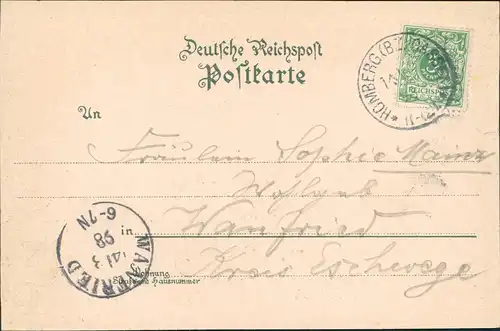 Deutsche Reichspost
Postkarte
HOMBERG (BZ. CASSEL)
11-12V
REICHSPOST
An
Fräulein Sophie Mainz
Wohlgeb
in Wanfried
Kreis Eschwege
Wohnung
Straße und Hausnummer
WANFRIED
14 3
98
6-7N